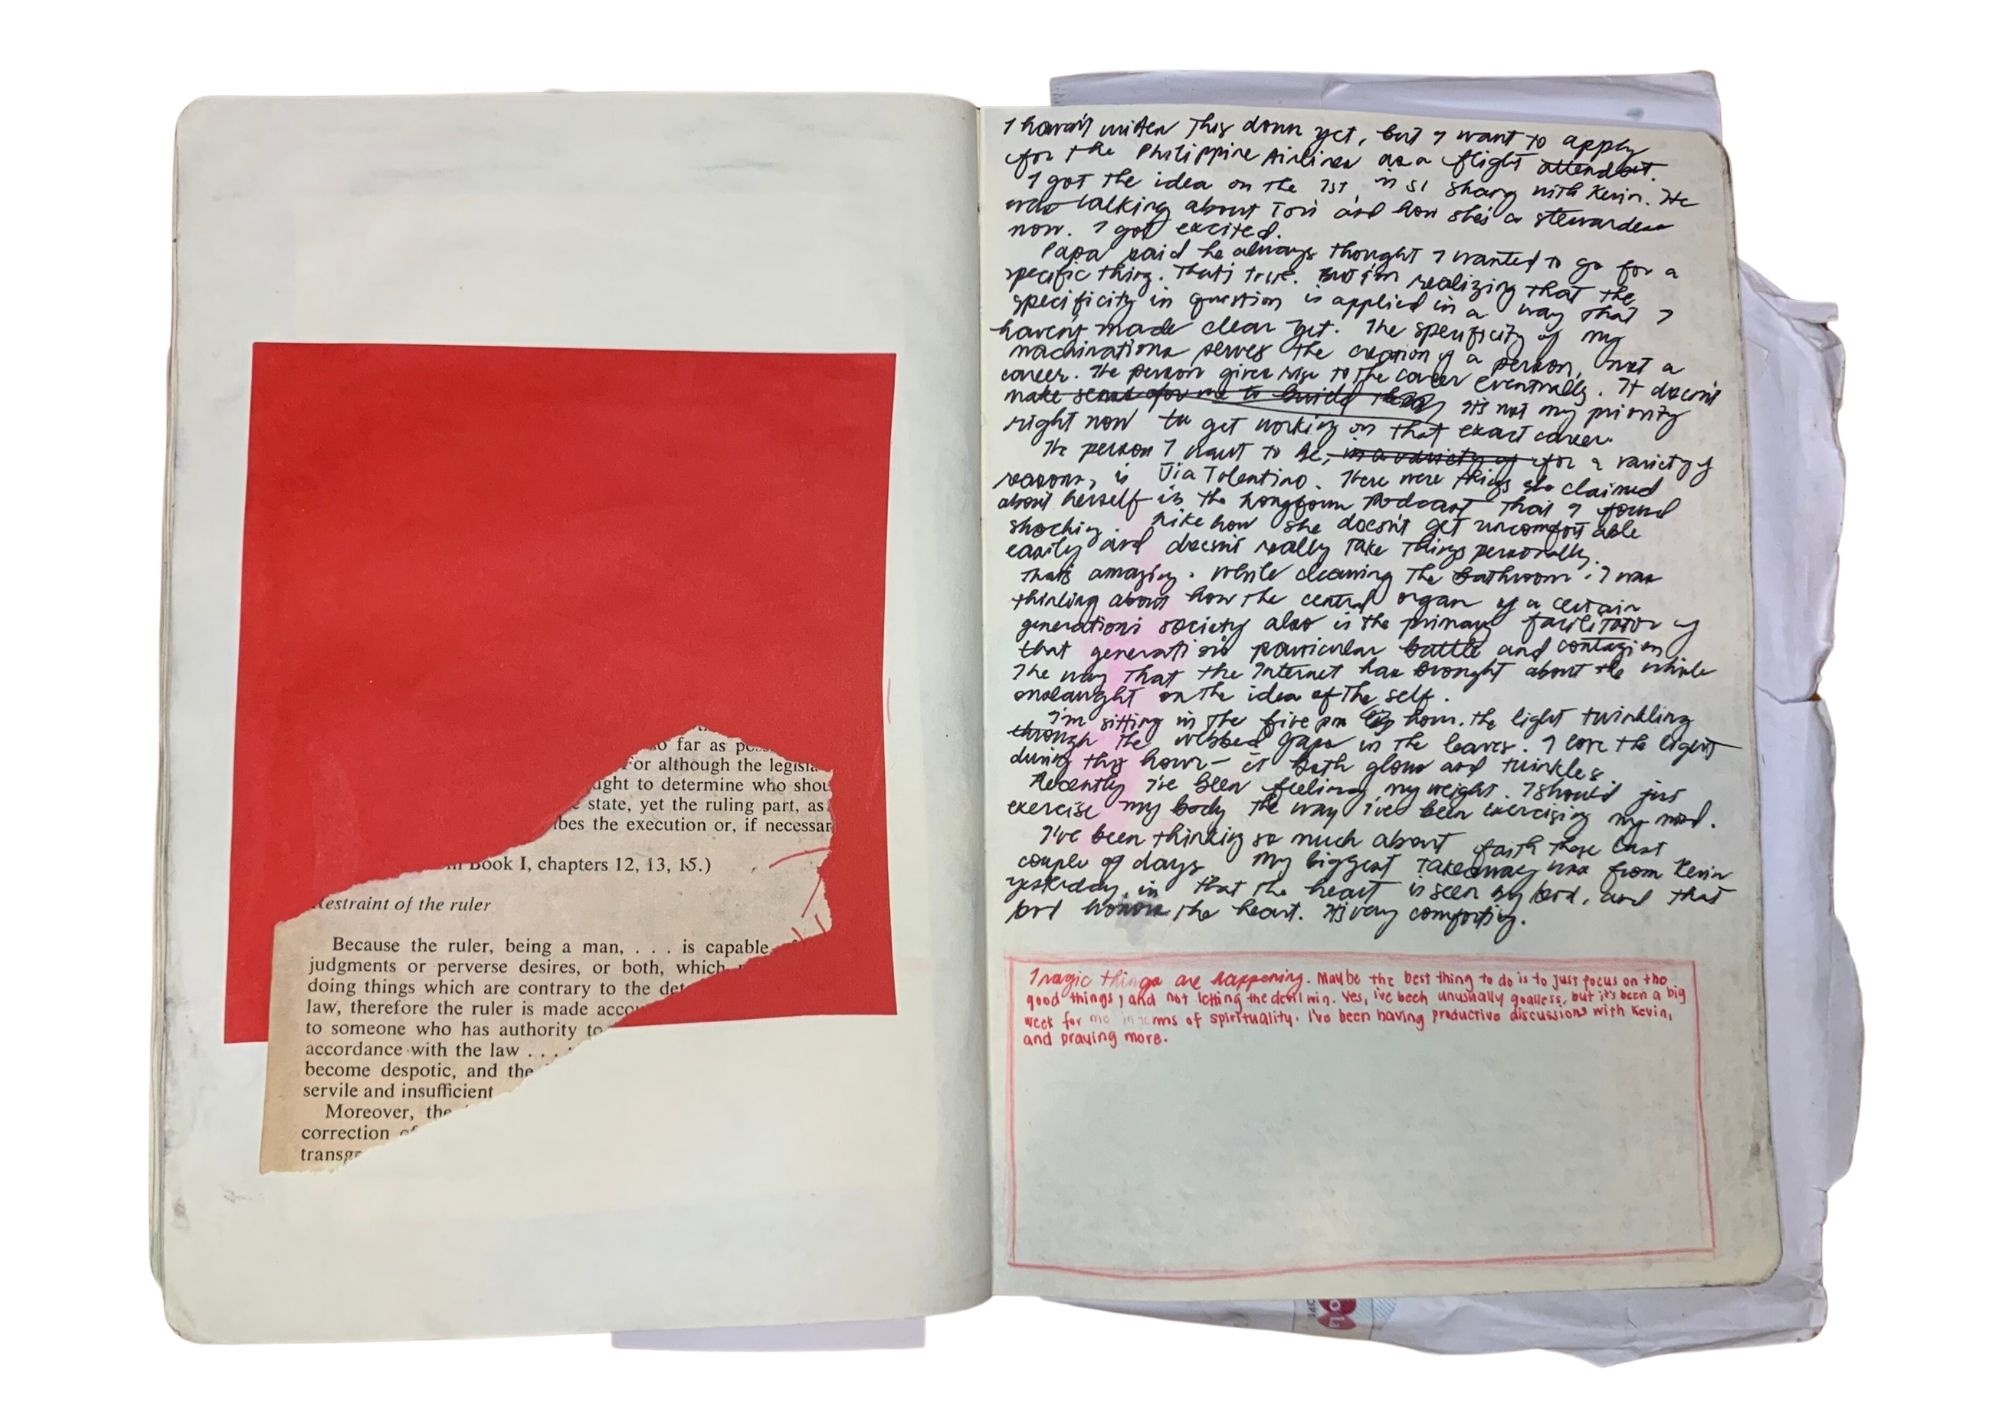 so far as
For although the legisla
ught to determine who shou
state, yet the ruling part, as
bes the execution or, if necessar
Book I, chapters 12, 13, 15.)
Restraint of the ruler
Because the ruler, being a man, . . . is capable
judgments or perverse desires, or both, which
doing things which are contrary to the det
law, therefore the ruler is made acco
to someone who has authority to
accordance with the law . . .
become despotic, and the
servile and insufficient
Moreover, the
correction of
transg
I haven't written this down yet, but I want to apply
for the Philippine Airlines as a flight attendant.
I got the idea on the 1st in S1 Shang with Kevin. He
was talking about Tori and how she's a stewardess
now. I got excited.
Papa said he always thought I wanted to go for a
specific thing. That's true. But I'm realizing that the
specificity in question is applied in a way that I
haven't made clear yet. The specificity of my
machinations serves the creation of a person, not a
career. The person gives rise to the career eventually. It doesn't
make sense for me to build it's not my priority
right now to get working on that exact career.
The person I want to be, in a variety of for a variety of
reasons, is Jia Tolentino. There were things she claimed
about herself in the Longform Podcast that I found
shocking. Like how she doesn't get uncomfortable
easily and doesn't really take things personally.
That's amazing. While cleaning the bathroom I was
thinking about how the central organ of a certain
generation's society also is the primary facilitator of
that generation's particular battle and contagion
The way that the Internet has brought about the whole
onslaught on the idea of the self.
I'm sitting in the five pm hour. The light twinkling
through the webbed gaps in the leaves. I love the light
during this hour – it both glows and twinkles.
Recently I've been feeling my weight. I should just
exercise my body the way I've been exercising my mind.
I've been thinking so much about faith these last
couple of days My biggest takeaway was from Kevin
yesterday, in that the heart is seen by God, and that
God honors the heart. It's very comforting.
Tragic things are happening. Maybe the best thing to do is to just focus on the
good things, and not letting the devil win. Yes, I've been unusually goalless, but it's been a big
week for me in terms of spirituality. I've been having productive discussions with Kevin,
and praying more.